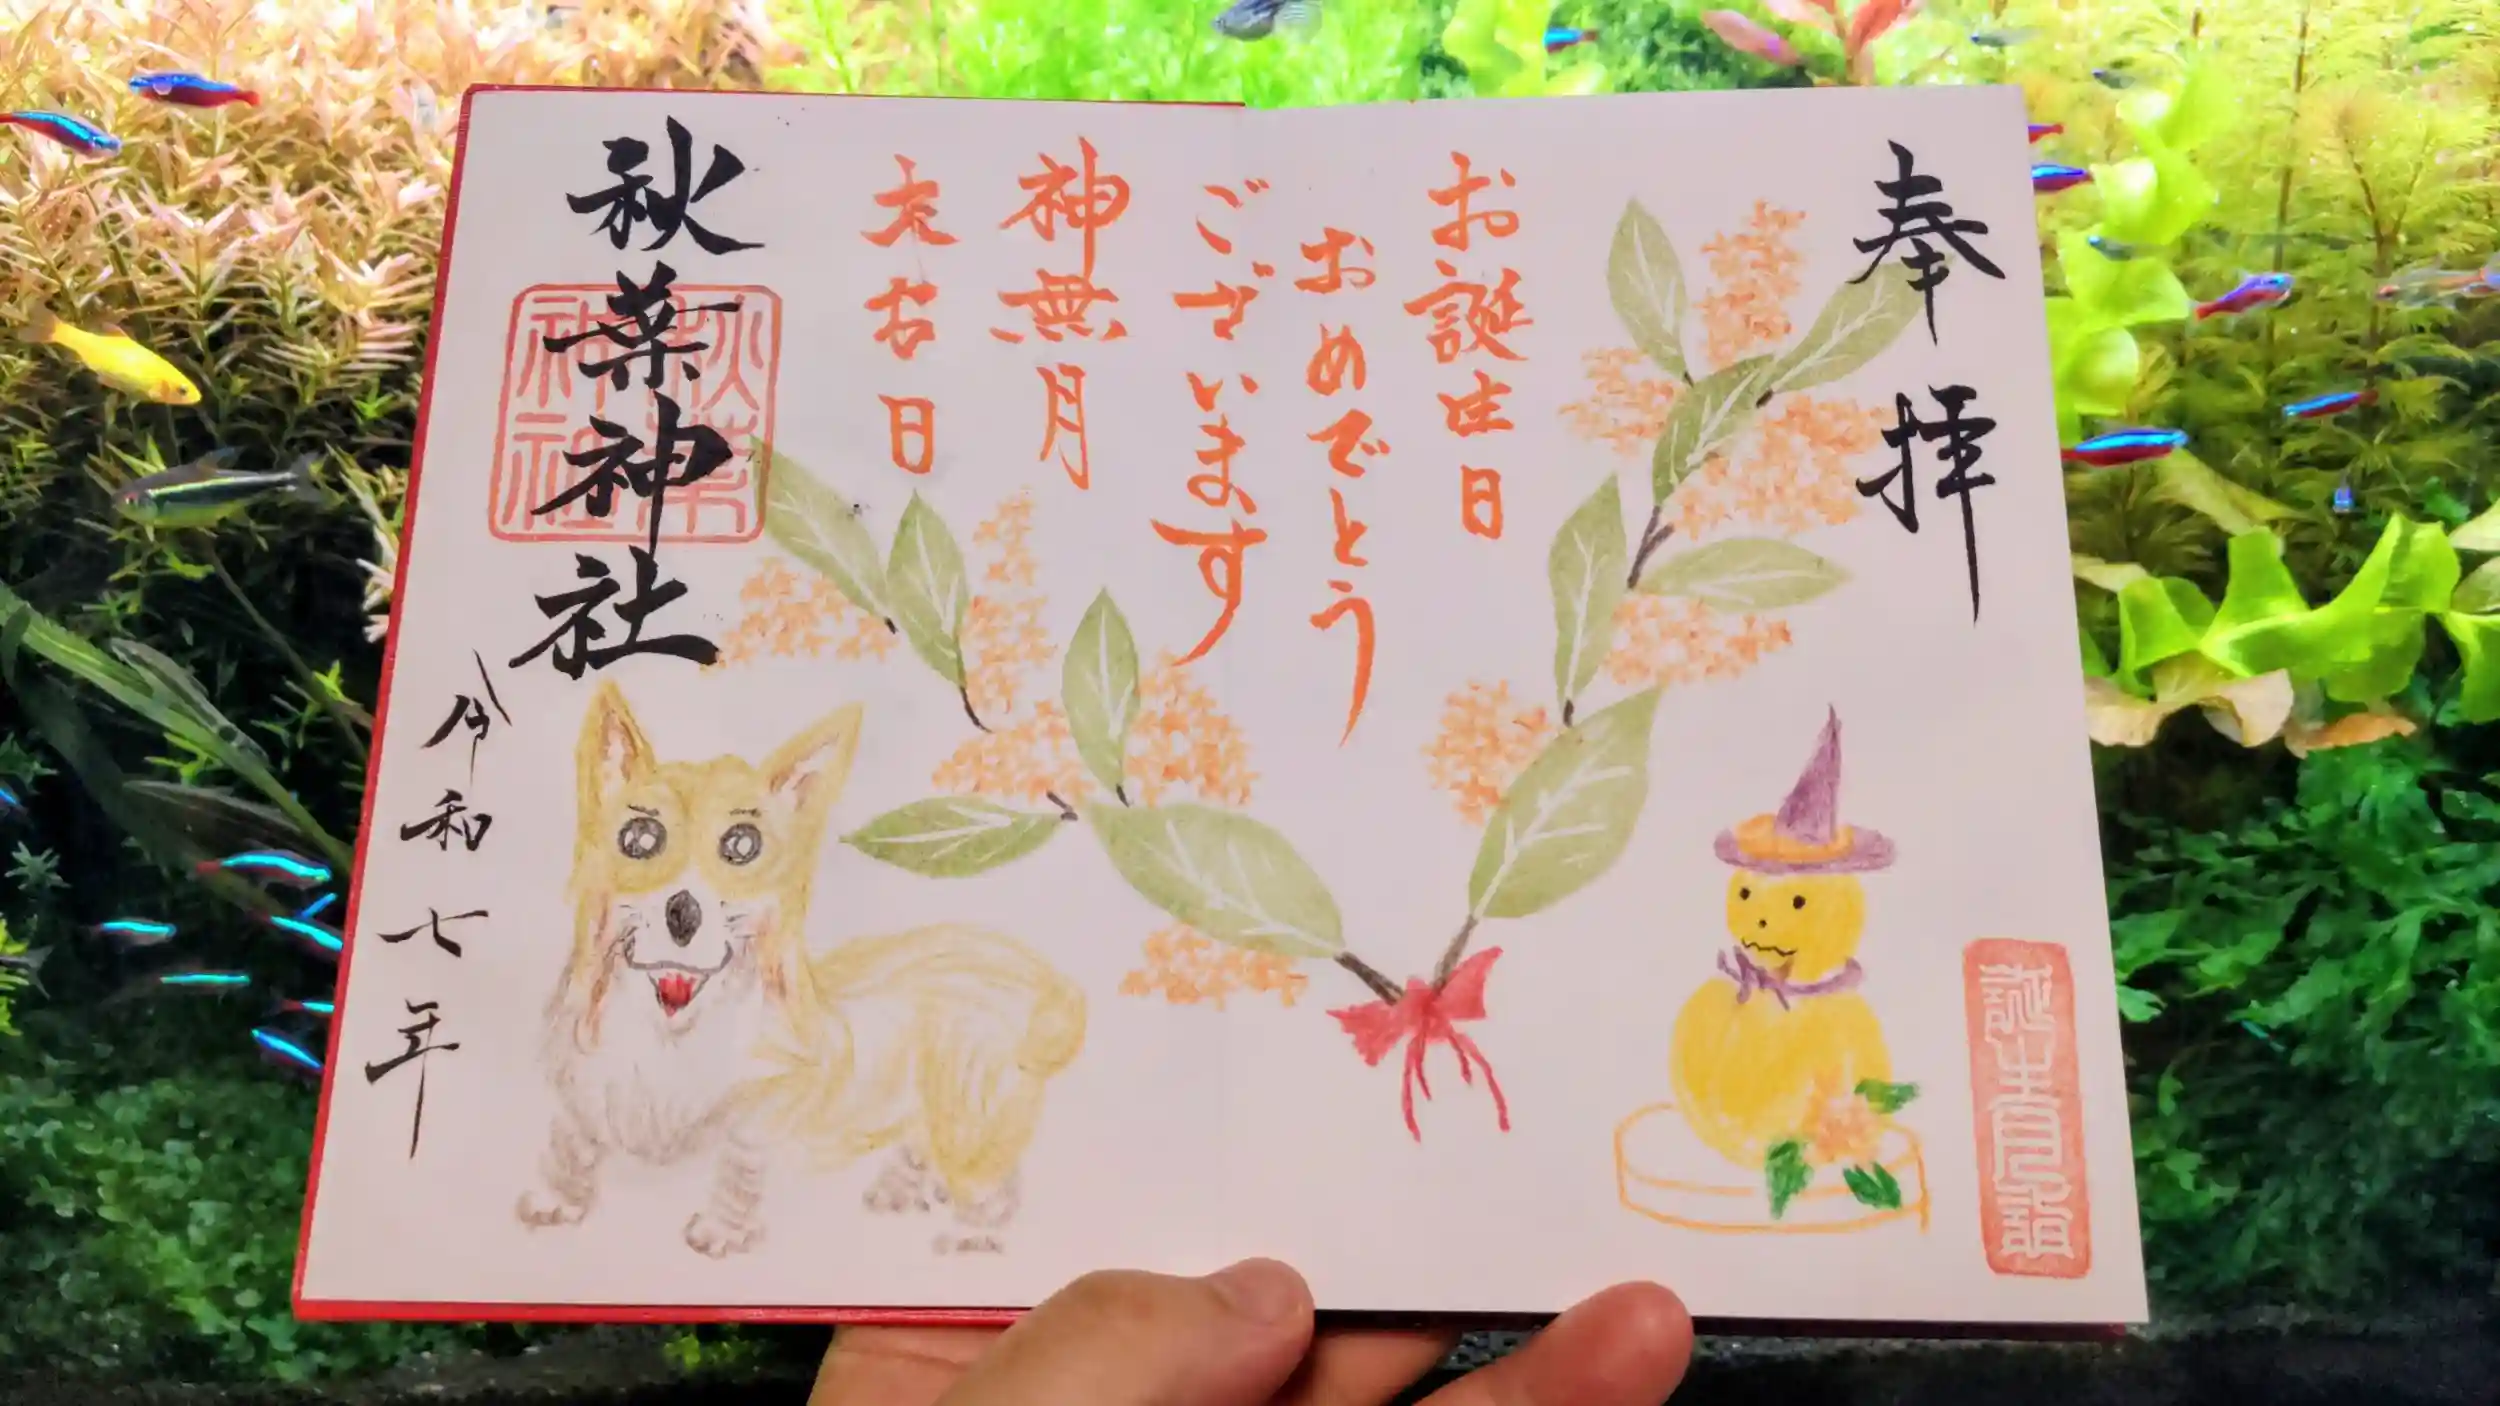 奉拝
お誕生日
おめでとう
ございます
神無月
秋葉神社
令和七年
誕生月詣
秋葉
神社